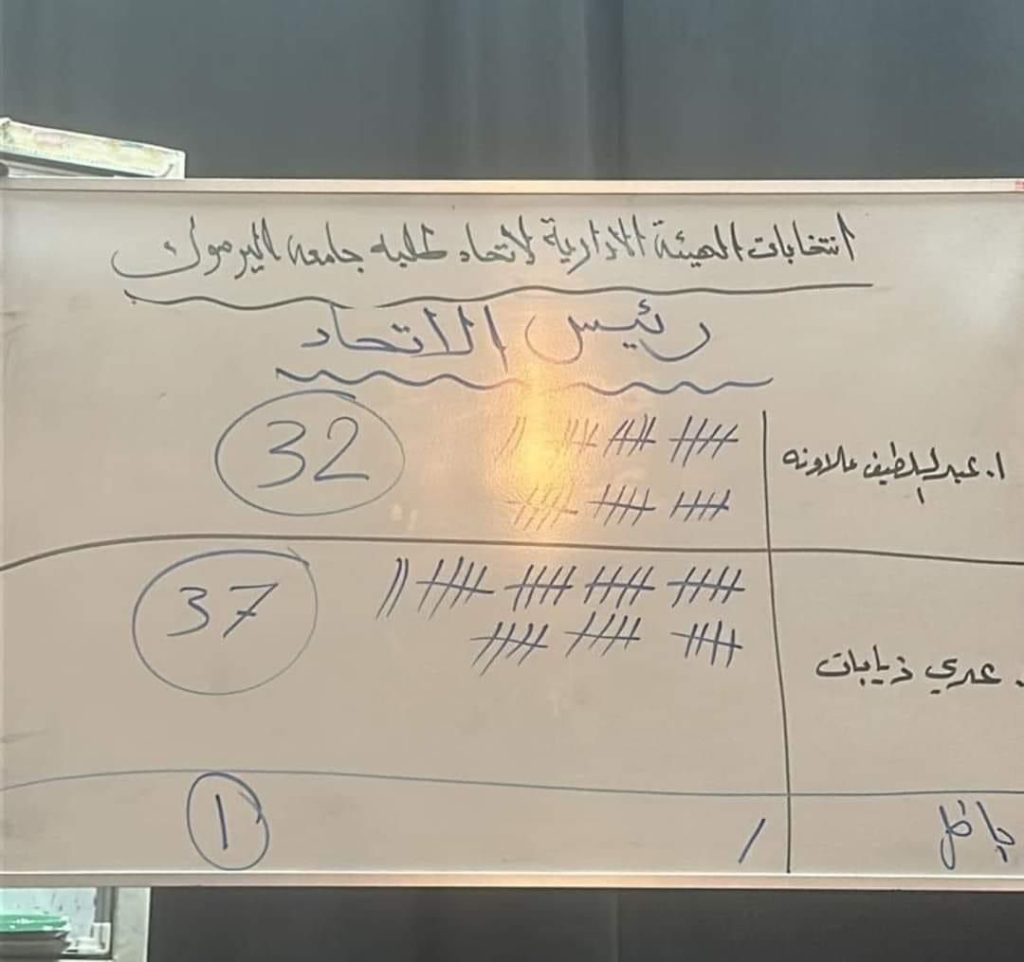 انتخابات الهيئة الادارية لاتحاد طلبه جامعه اليرموك
رئيس الاتحاد
ا. عبداللطيف علاونه 32
عدي ذيابات 37
باطل 1